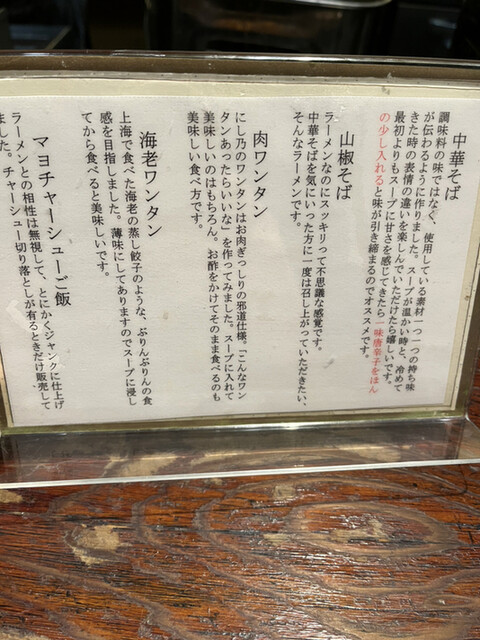 中華そば
調味料の味ではなく、使用している素材一つ一つの持ち味
が伝わるように作りました。スープが温かい時と、冷めて
きた時の表情の違いを楽しんでいただけたら嬉しいです。
最初よりもスープに甘さを感じてきたら一味唐辛子をほん
の少し入れると味が引き締まるのでオススメです。
山椒そば
ラーメンなのにスッキリって不思議な感覚です。
中華そばを気にいった方に一度は召し上がっていただきたい、
そんなラーメンです。
肉ワンタン
にし乃のワンタンはお肉ぎっしりの邪道仕様。「こんなワン
タンあったらいいな」を作ってみました。スープに入れて
美味しいのはもちろん。お酢をかけてそのまま食べるのも
美味しい食べ方です。
海老ワンタン
上海で食べた海老の蒸し餃子のような、ぷりんぷりんの食
感を目指しました。薄味にしてありますのでスープに浸し
てから食べると美味しいです。
マヨチャーシューご飯
ラーメンとの相性は無視して、とにかくジャンクに仕上げ
ました。チャーシュー切り落としが有るときだけ販売して